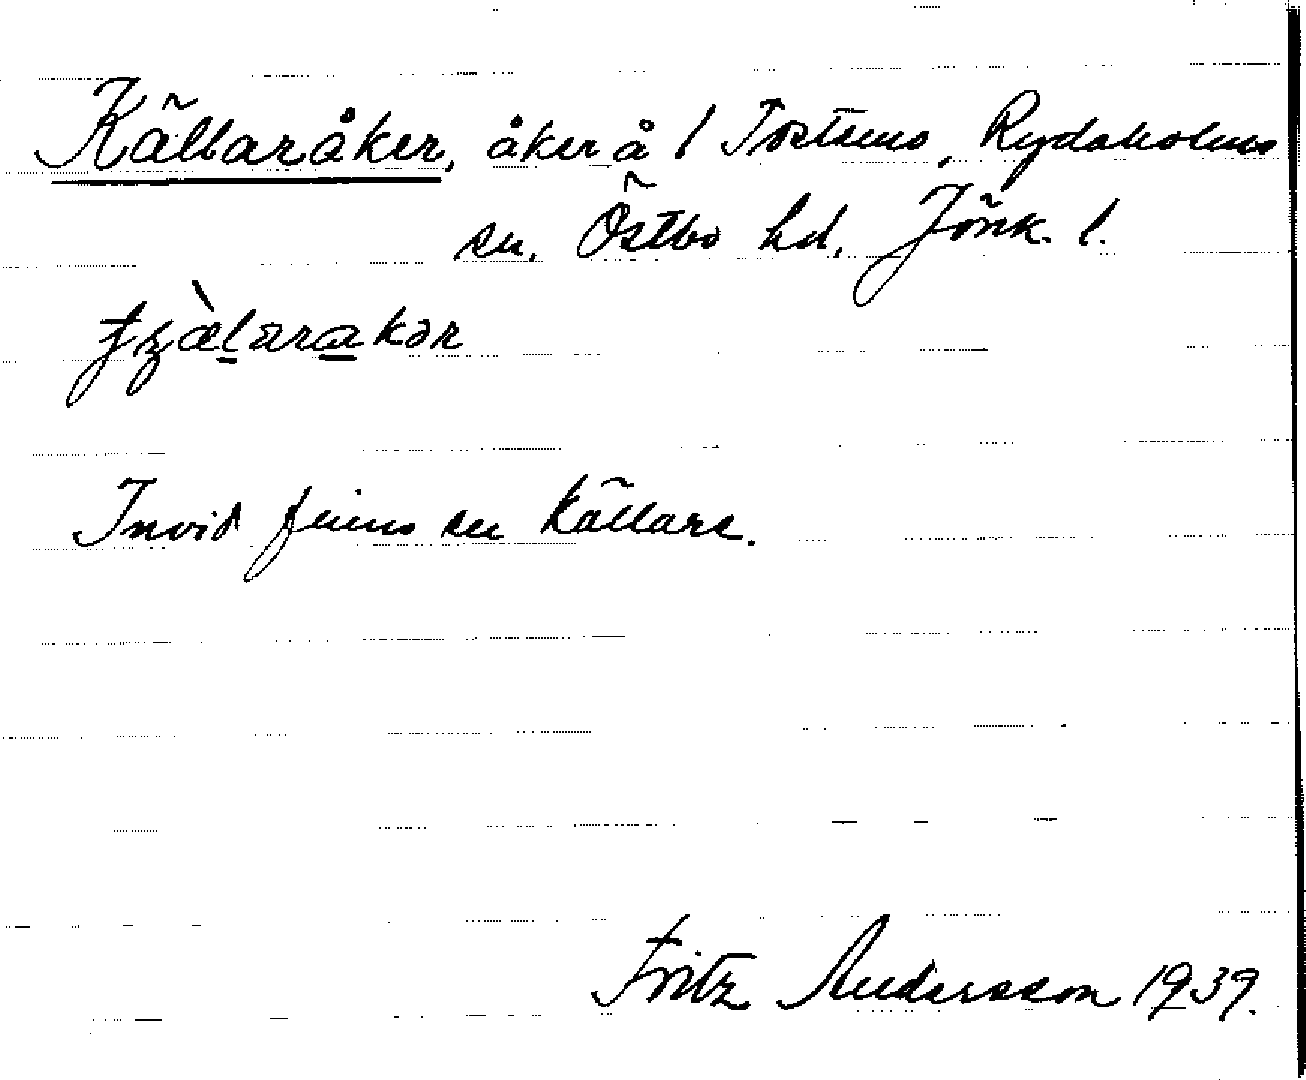 Källaråker, åker å 1 Tostens, Rydaholms
sn. Östbo hd. Jönk. l.
Invid finns en källare.
Fritz Andersson 1939.